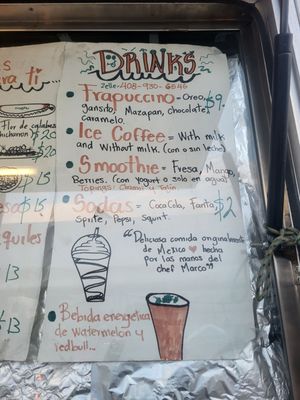 DRINKS
Zelle-408-930-6846
Frapuccino-Oreo, $9.
gansito, Mazapan, chocolate,
caramelo.
Ice Coffee= With milk
and without milk. (con o sin leche)
Smoothie= Fresa, Mango,
Berries. (con yogurt o solo en agua)
Topings: Chamoy
Sodas = CocaCola, Fanta, $2
Sprite, Pepsi, Squirt.
"Deliciosa comida originalmente
de Mexico hecha
por las manos del
chef Marco"
Bebida energetica
de watermelon y
redbull...
s
ara ti...
Flor de calabaza
chicharron $20
$20
$15
esa $15
quiles
13
$13